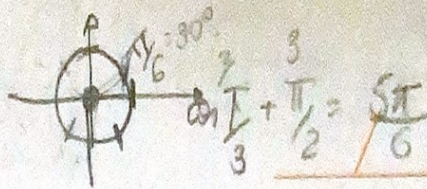 π/6 = 30°
π/3 + π/2 = 5π/6